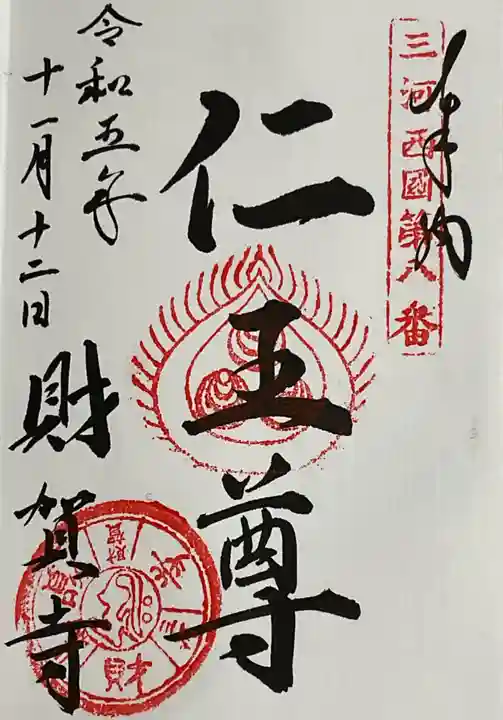 奉拝
三河西國第八番
仁王尊
令和五年
十一月十二日
財賀寺
財福
財